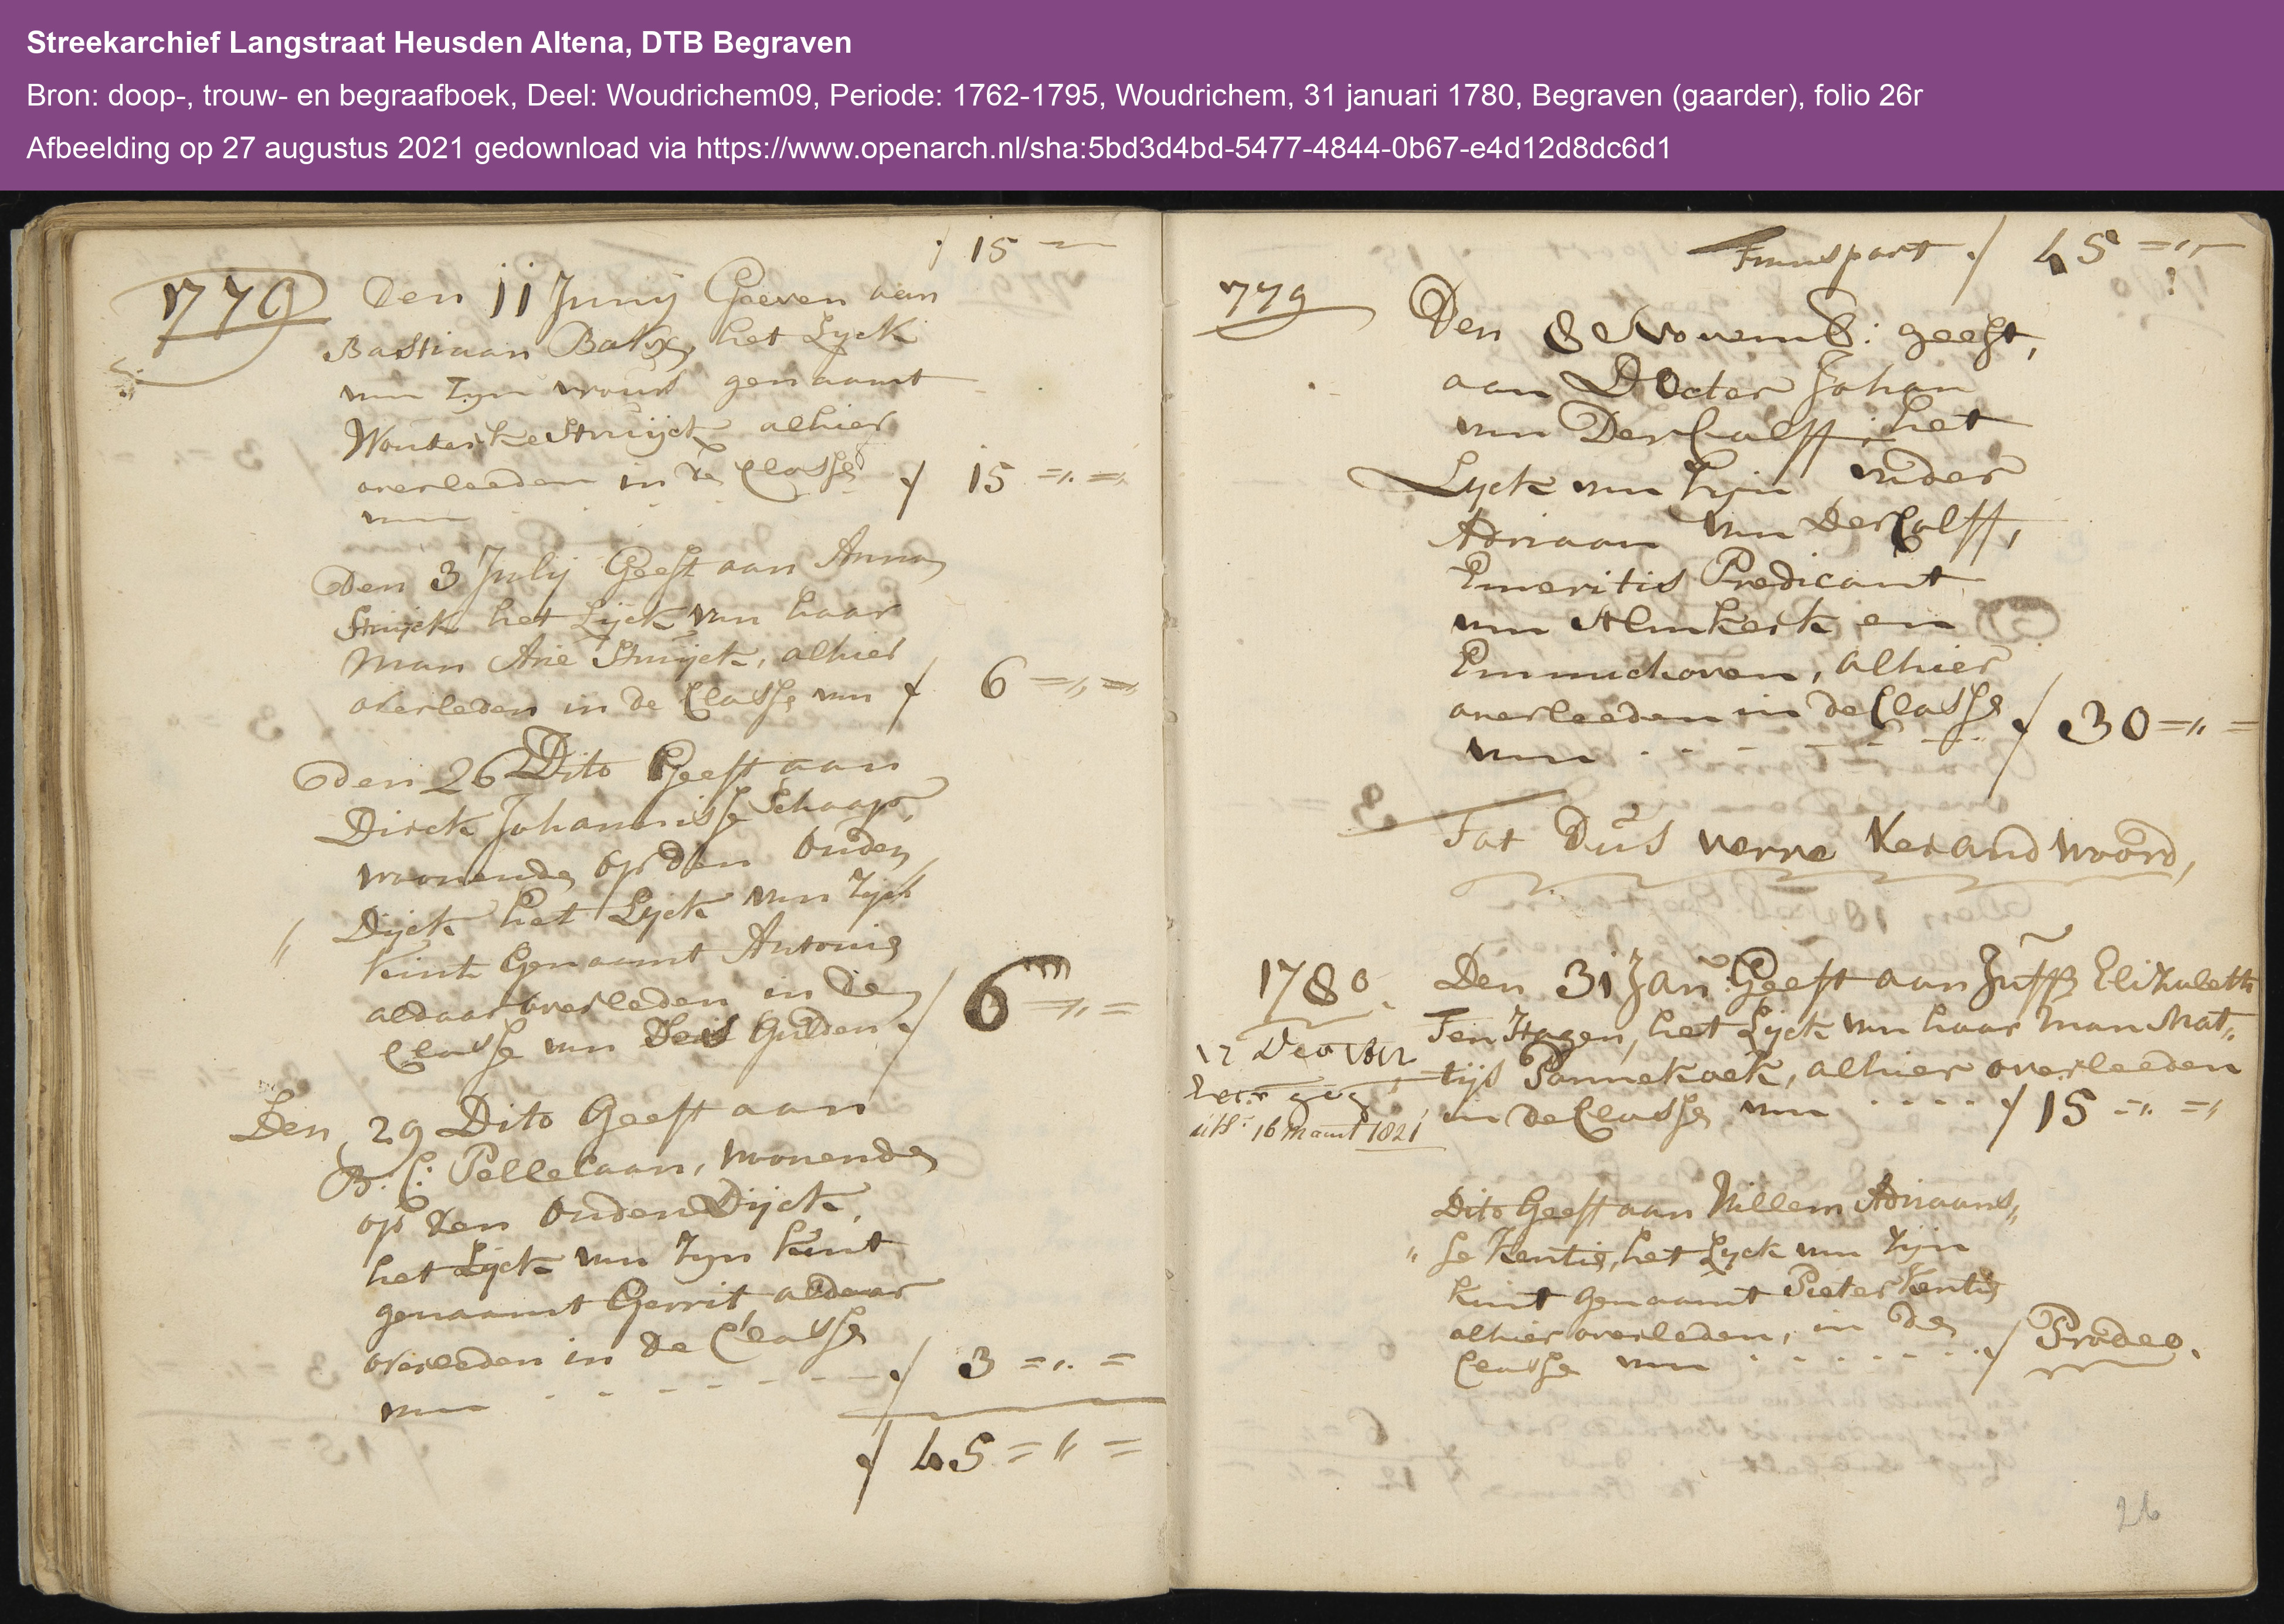 Streekarchief Langstraat Heusden Altena, DTB Begraven
Bron: doop-, trouw- en begraafboek, Deel: Woudrichem09, Periode: 1762-1795, Woudrichem, 31 januari 1780, Begraven (gaarder), folio 26r
Afbeelding op 27 augustus 2021 gedownload via https://www.openarch.nl/sha:5bd3d4bd-5477-4844-0b67-e4d12d8dc6d1
ƒ 15
1779 Den 11 Junij Geeven aan
Bastiaan Bakx, het Lyck
van Zyn vrouw genaamt
Wouterke Struijck alhier
overleeden in de Classe ƒ 15 = " =
van
Den 3 Julij Geeft aan Anna
Struijck het Lijck van haar
man Arie Struijck, alhier
overleden in de Classe van ƒ 6 = " =
Den 26 Dito Geeft aan
Dirck Johannisse Schaap,
woonende op den Ouden
Dijck het Lyck van Zijn
Kint Genaamt Antonie
aldaar overleden in de
Classe van Ses Gulden ƒ 6 = " =
Den 29 Dito Geeft aan
B: C: Pellecaan, woonende
op den Ouden Dijck,
het Lijck van Zyn Kint
genaamt Gerrit, aldaar
overleden in de Classe
van ƒ 3 = " =
ƒ 45 = " =
Transport ƒ 45 = "
1779 Den 8 Novemb: geeft,
aan Docter Johan
van Der Calff, het
Lyck van Zijn vader
Adriaan van Der Calff,
Emeritis Predicant
van Almkerk en
Emmichoven, alhier
overleeden in de Classe
van ƒ 30 = " =
Tot Dus verre Verandwoord,
1780. Den 31 Jan: Geeft aan Juffr Elizabeth
Ten Hagen, het Lijck van haar man Mat„
tijs Pannekoek, alhier overleeden
in de Classe van ƒ 15 = " = "
uts: 16 maart 1821
Dito Geeft aan Willem Adriaans„
„ se Kentie, het Lyck van Zijn
Kint Genaamt Pieter Kentie
alhier overleden, in de
Classe van ƒ Prodeo.
26